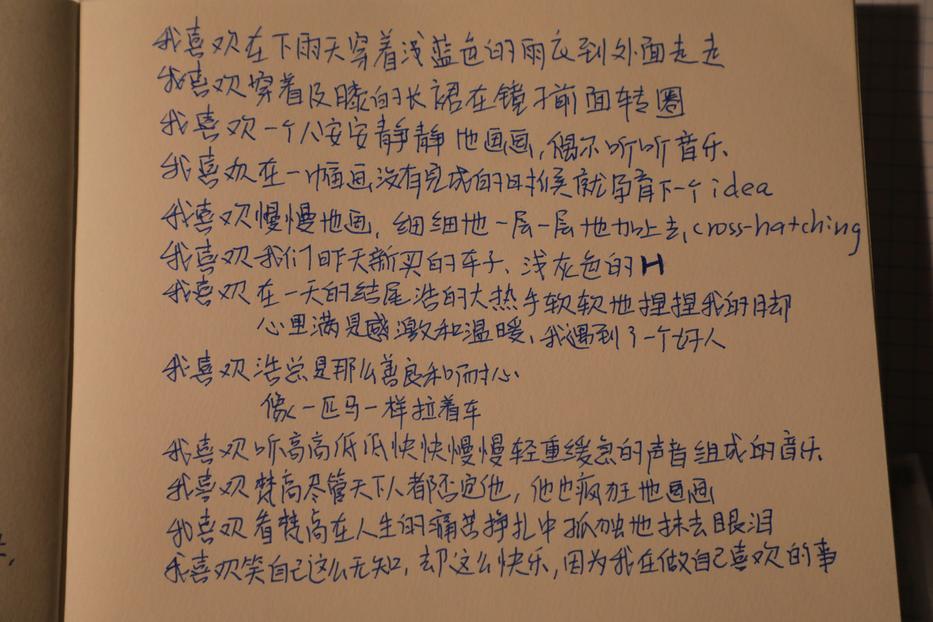 我喜欢在下雨天穿着浅蓝色的雨衣到外面走走
我喜欢穿着及膝的长裙在镜子前面转圈
我喜欢一个人安安静静地画画,偶尔听听音乐、
我喜欢在一幅画没有完成的时候就孕育下一个idea
我喜欢慢慢地画,细细地一层一层地加上去,cross-hatching
我喜欢我们昨天新买的车子、浅灰色的H
我喜欢在一天的结尾浩的大热手软软地捏捏我的脚
心里满是感激和温暖、我遇到了一个好人
我喜欢浩总是那么善良和耐心
像一匹马一样拉着车
我喜欢听高高低低快快慢慢轻重缓急的声音组成的音乐、
我喜欢梵高尽管天下人都否定他,他也疯狂地画画
我喜欢看梵高在人生的痛苦挣扎中孤独地抹去眼泪
我喜欢笑自己这么无知,却这么快乐,因为我在做自己喜欢的事